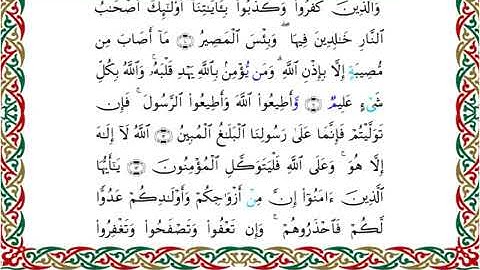 وَٱلَّذِينَ كَفَرُوا۟ وَكَذَّبُوا۟ بِـَٔايَـٰتِنَآ أُو۟لَـٰٓئِكَ أَصْحَـٰبُ
ٱلنَّارِ خَـٰلِدِينَ فِيهَا ۖ وَبِئْسَ ٱلْمَصِيرُ ۝ مَآ أَصَابَ مِن
مُّصِيبَةٍ إِلَّا بِإِذْنِ ٱللَّهِ ۗ وَمَن يُؤْمِنۢ بِٱللَّهِ يَهْدِ قَلْبَهُۥ ۚ وَٱللَّهُ بِكُلِّ
شَىْءٍ عَلِيمٌ ۝ وَأَطِيعُوا۟ ٱللَّهَ وَأَطِيعُوا۟ ٱلرَّسُولَ ۚ فَإِن
تَوَلَّيْتُمْ فَإِنَّمَا عَلَىٰ رَسُولِنَا ٱلْبَلَـٰغُ ٱلْمُبِينُ ۝ ٱللَّهُ لَآ إِلَـٰهَ
إِلَّا هُوَ ۚ وَعَلَى ٱللَّهِ فَلْيَتَوَكَّلِ ٱلْمُؤْمِنُونَ ۝ يَـٰٓأَيُّهَا
ٱلَّذِينَ ءَامَنُوٓا۟ إِنَّ مِنْ أَزْوَٰجِكُمْ وَأَوْلَـٰدِكُمْ عَدُوًّا
لَّكُمْ فَٱحْذَرُوهُمْ ۚ وَإِن تَعْفُوا۟ وَتَصْفَحُوا۟ وَتَغْفِرُوا۟